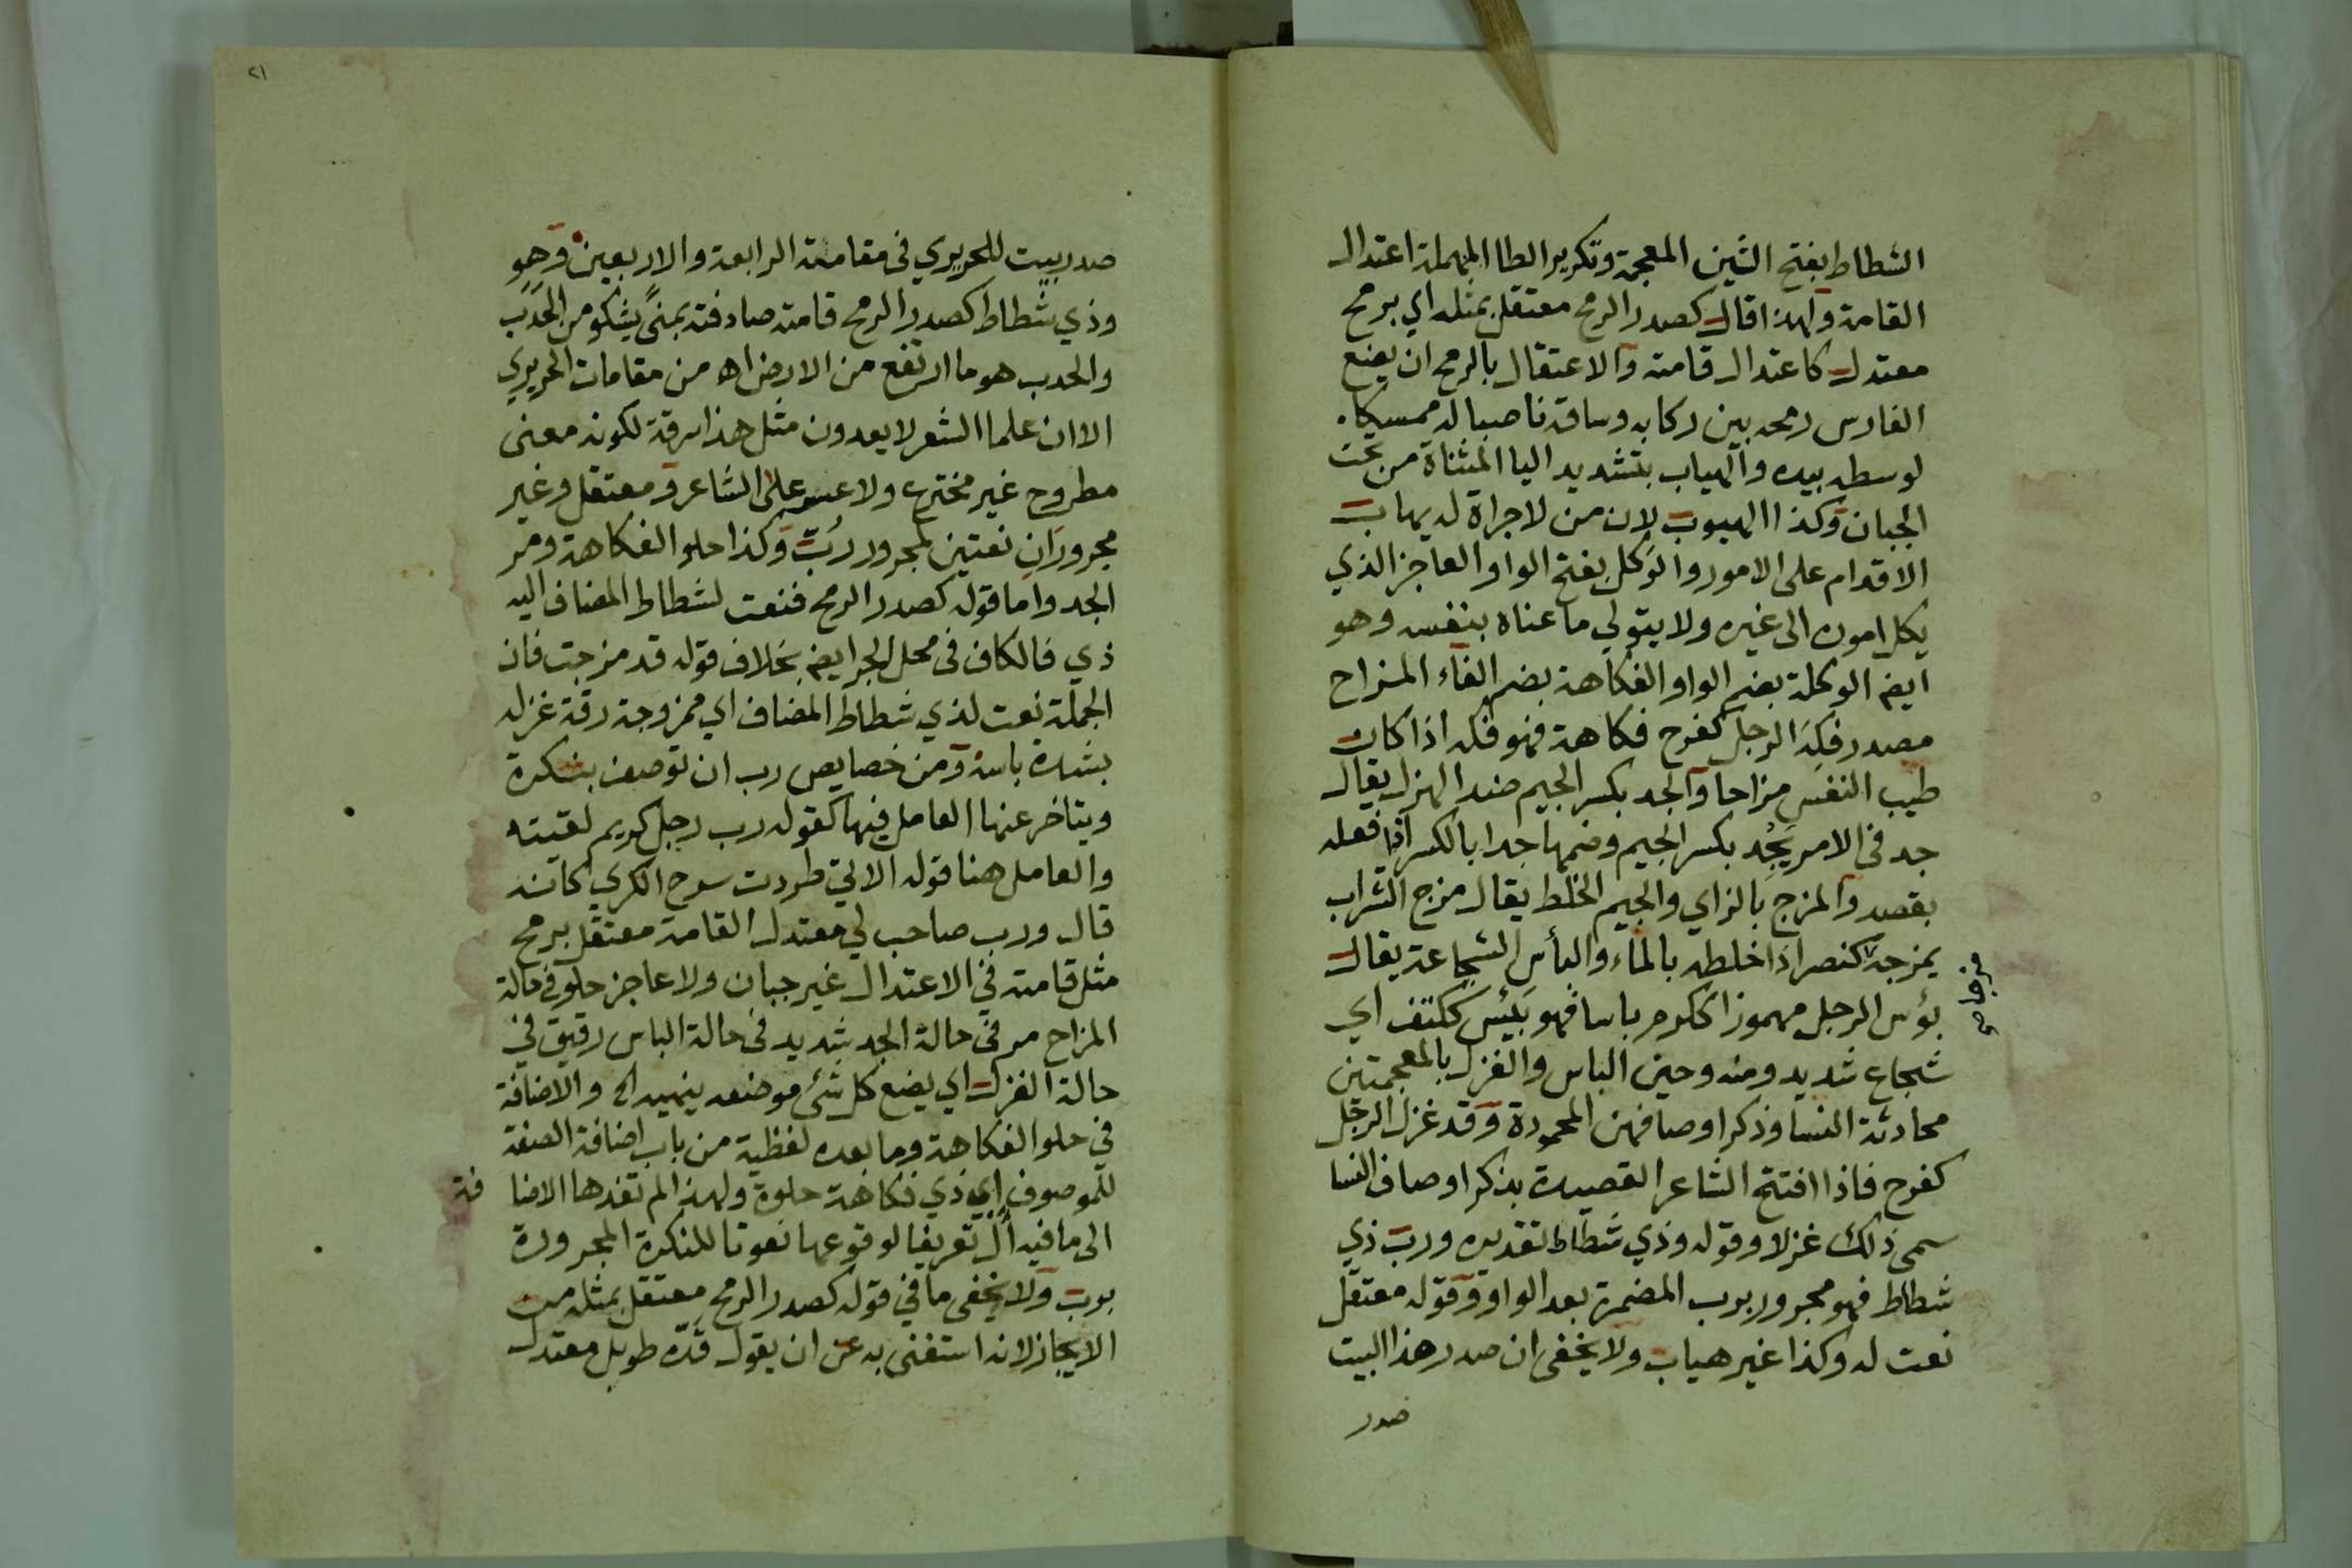 الشطاط بفتح الشين المعجمة وتكرير الطا المهملة اعتدال
القامة ولهذا قال كصدر الرمح معتقل بمثله اي برمح
معتدل كاعتدال قامته والاعتقال بالرمح ان يضع
الفارس رمحه بين ركابه وساقه ناصبا له ممسكا
لوسطه بيده والهياب بتشديد اليا المثناة من تحت
الجبان وكذا الهيوب لان من لا جراة له يهاب
الاقدام على الامور والوكل بفتح الواو العاجز الذي
يكل اموره الى غيره ولا يتولي ما عناه بنفسه وهو
ايضا الوكلة بضم الواو والفكاهة بضم الفاء المزاح
مصدر فكِهَ الرجل كفرح فكاهة فهو فكه اذا كان
طيب النفس مزاحا والجد بكسر الجيم ضد الهزل يقال
جد في الامر يَجُِد بكسر الجيم وضمها جدا بالكسر اذا فعله
بقصد والمزج بالزاي والجيم الخلط يقال مزج الشراب
يمزجه كنصر اذا خلطه بالماء والبأس الشجاعة يقال
بؤس الرجل مهموزا ككرم باسا فهو بَئِس ككتف اي
شجاع شديد ومنه وحين الباس والغزل بالمعجمتين
محادثة النسا وذكر اوصافهن المحمودة وقد غزل الرجل
كفرح فاذا افتتح الشاعر القصيدة بذكر اوصاف النسا
سمى ذلك غزلا وقوله وذي شطاط تقديره ورب ذي
شطاط فهو مجرور برب المضمرة بعد الواو وقوله معتقل
نعت له وكذا غير هياب ولا يخفى ان صدر هذا البيت
صدر
٢١
صدر بيت للحريري في مقامته الرابعة والاربعين وهو
وذي شطاط كصدر الرمح قامته صادفته بمنًى يشكو من الحدب
والحدب هو ما ارتفع من الارض اه من مقامات الحريري
الا ان علما الشعر لا يعدون مثل هذا سرقة لكونه معنى
مطروح غير مخترع ولا عسر على الشاعر ومعتقل وغير
مجروران نعتين لمجرور رُبّ وكذا حلو الفكاهة ومر
الجد واما قوله كصدر الرمح فنعت لشطاط المضاف اليه
ذي فالكاف في محل الجر ايضا بخلاف قوله قد مزجت فان
الجملة نعت لذي شطاط المضاف اي ممزوجة رقة غزله
بشدة باسه ومن خصايص رب ان توصف بنكرة
ويتاخر عنها العامل فيها كقوله رب رجل كريم لقيته
والعامل هنا قوله الاتي طردت سرح الكري كانه
قال ورب صاحب لي معتدل القامة معتقل برمح
مثل قامته في الاعتدال غير جبان ولا عاجز حلو في حالة
المزاح مر في حالة الجد شديد في حالة الباس رقيق في
حالة الغزل اي يضع كل شئ موضعه والاضافة
في حلو الفكاهة وما بعده لفظية من باب اضافة الصفة
للموصوف اي ذي فكاهة حلوة ولهذا لم تفدها الاضا فة
الى ما فيه أل تعريفا لوقوعها نعوتا للنكرة المجرورة
برب ولا يخفى ما في قوله كصدر الرمح معتقل بمثله من
الايجاز لانه استغنى به عن ان يقول قدّه طويل معتدل